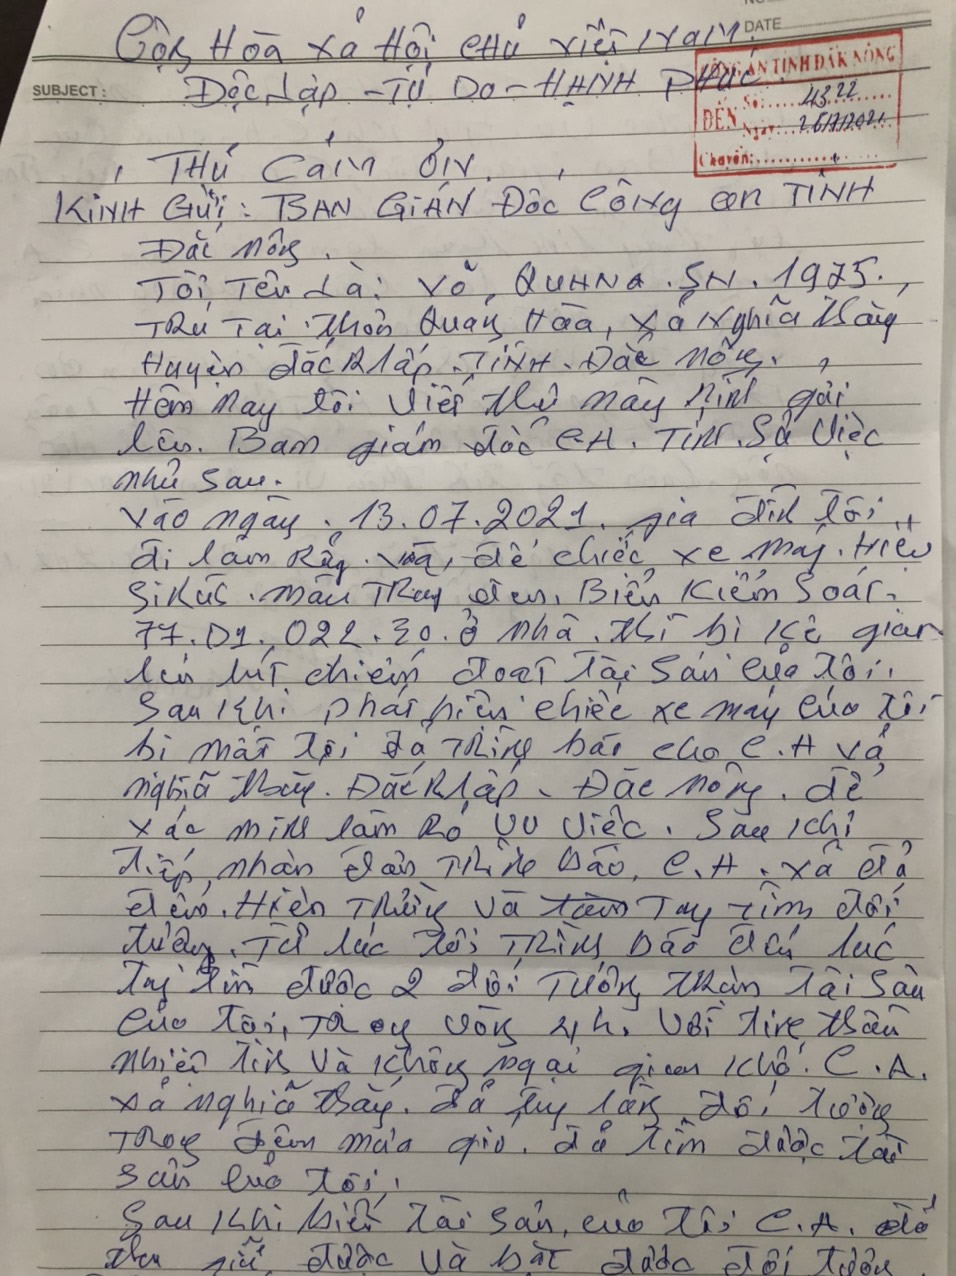 DATE
Cộng Hòa xả Hội chủ việt Nam
SUBJECT :
Độc lập - Tự Do - HẠNH PHÚC
CÔNG AN TỈNH ĐĂK NÔNG
ĐẾN
Số: 4322
Ngày: 26/7/2021
Chuyển:
THƯ CẢM ƠN.
Kính Gửi: BAN GIÁN Đốc Công an TỈNH
Đắc Nông.
Tôi Tên Là: Võ, QUHNG. SN. 1975.
TRú Tại thôn Quang Hòa, xả Nghĩa thắng
Huyện đắc Rlấp. TỈNH. Đắc Nông.
Hôm Nay tôi viết thư này kính gửi
lên. Ban giám đốc C.A. Tỉnh. Sự việc
như sau.
vào ngày. 13.07.2021. gia đình tôi
đi làm Rẫy. và để chiếc xe máy. Hiệu
Màu TRắng đen. Biển Kiểm Soát.
77.D1. 022.30. ở nhà. thì bị kẻ gian
lén lút chiếm đoạt Tài Sản của tôi.
Sau khi phát hiện chiếc xe máy của tôi
bị mất tôi đã Trình báo cho C.A xả
nghĩa thắng. Đắc Rlấp. Đắc Nông. để
xác minh làm Rỏ vụ việc. Sau khi
tiếp nhận đơn Trình báo, C.A. xã đã
đến. Hiện Trường và Tay tìm đối
tượng. Từ lúc tôi Trình báo đến lúc
tìm được 2 đối Tượng Tài Sản
của tôi, Trong vòng 4h. với tinh thần
nhiệt tình và không ngại gian khổ. C.A.
xả Nghĩa thắng. đã truy lùng đối tượng
Trong đêm mưa gió. đã tìm được tài
sản của tôi.
Sau khi biết tài sản của tôi C.A. đã
thu giữ được và bắt được đối tượng